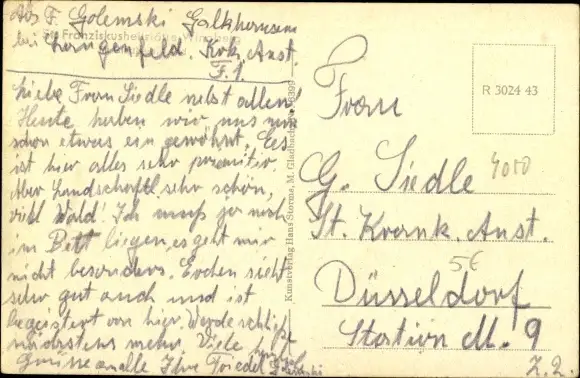 Abs F. Golemski Galkhausen
bei Langenfeld. Krk. Anst.
F.1.
Liebe Frau Siedle nebst allen!
Heute haben wir uns nun
schon etwas ein gewöhnt. Es
ist hier alles sehr primitiv.
Aber Landschaftl. sehr schön,
viell Wald! Ich muß ja noch
im Bett liegen, es geht mir
nicht besonders. Evchen sieht
sehr gut auch und ist
begeistert von hier. Werde
nächstens mehr. Viele
Grüsse an alle Ihre Friedel
Kunstverlag Hans Storms, M. Gladbach
R 3024 43
Frau
G. Siedle
4010
St. Krank. Anst.
5€
Düsseldorf
Station M. 9
Z. 2.